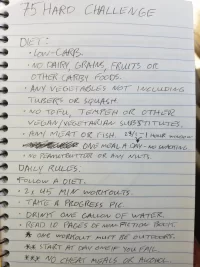 75 HARD CHALLENGE
DIET:
• LOW-CARB
• NO DAIRY, GRAINS, FRUITS OR
OTHER CARBY FOODS.
• ANY VEGETABLES NOT INCLUDING
TUBERS OR SQUASH.
• NO TOFU, TEMPEH OR OTHER
VEGAN/VEGETARIAN SUBSTITUTES.
• ANY MEAT OR FISH. 1 HOUR WINDOW
ONE MEAL A DAY - NO SNACKING
• NO PEANUTBUTTER OR ANY NUTS.
DAILY RULES.
FOLLOW A DIET.
• 2x 45 MIN WORKOUTS.
• TAKE A PROGRESS PIC
• DRINK ONE GALLON OF WATER.
• READ 10 PAGES OF NON-FICTION BOOK.
* ONE WORKOUT MUST BE OUTDOORS.
** START AT DAY ONE IF YOU FAIL.
*** NO CHEAT MEALS OR ALCOHOL.